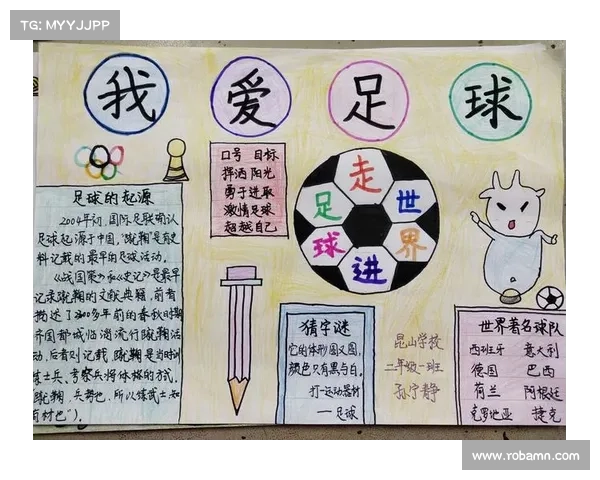 TG: MYYJJPP
我 爱 足 球
口号 目标
挥洒 阳光
勇于进取
激情足球
超越自己
足球的起源
2004年初,国际足联确认
足球起源于中国,"蹴鞠"是有史
料记载的最早的足球活动。
《战国策》和《史记》是最早
记录蹴鞠的文献典籍,前者
描述了2300多年前的春秋时期
齐国都城临淄流行蹴鞠活
动,后者则记载,蹴鞠是当时训
练士兵、考察兵将体格的方式。
蹴鞠,兵势也,所以练武士,知
有材也")。
足
球
走
进
世
界
猜字谜
它的体形圆又圆,
颜色只有黑与白。
打一运动器材
——足球
昆山学校
二年级一班
孙宁静
世界著名球队
西班牙 意大利
德国 巴西
荷兰 阿根廷
克罗地亚 捷克
www.robamn.com